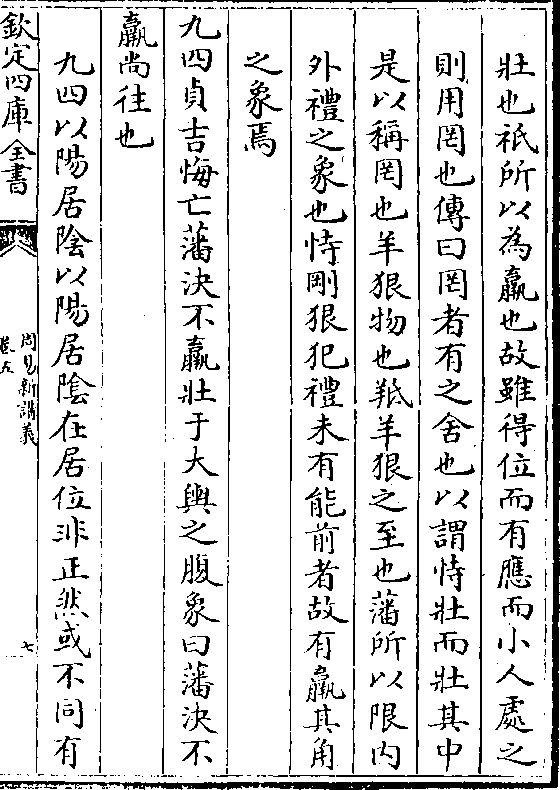 壯也祇所以為羸也故雖得位而有應而小人處之
則用罔也傳曰罔者有之舍也以謂恃壯而壯其中
是以稱罔也羊狠物也羝羊狠之至也藩所以限内
外禮之象也恃剛狠犯禮未有能前者故有羸其角
之象焉
九四貞吉悔亡藩決不羸壯于大輿之腹象曰藩決不
羸尚往也
九四以陽居陰以陽居陰在居位非正然或不同有
欽定四庫全書
周易新講義
卷五
七